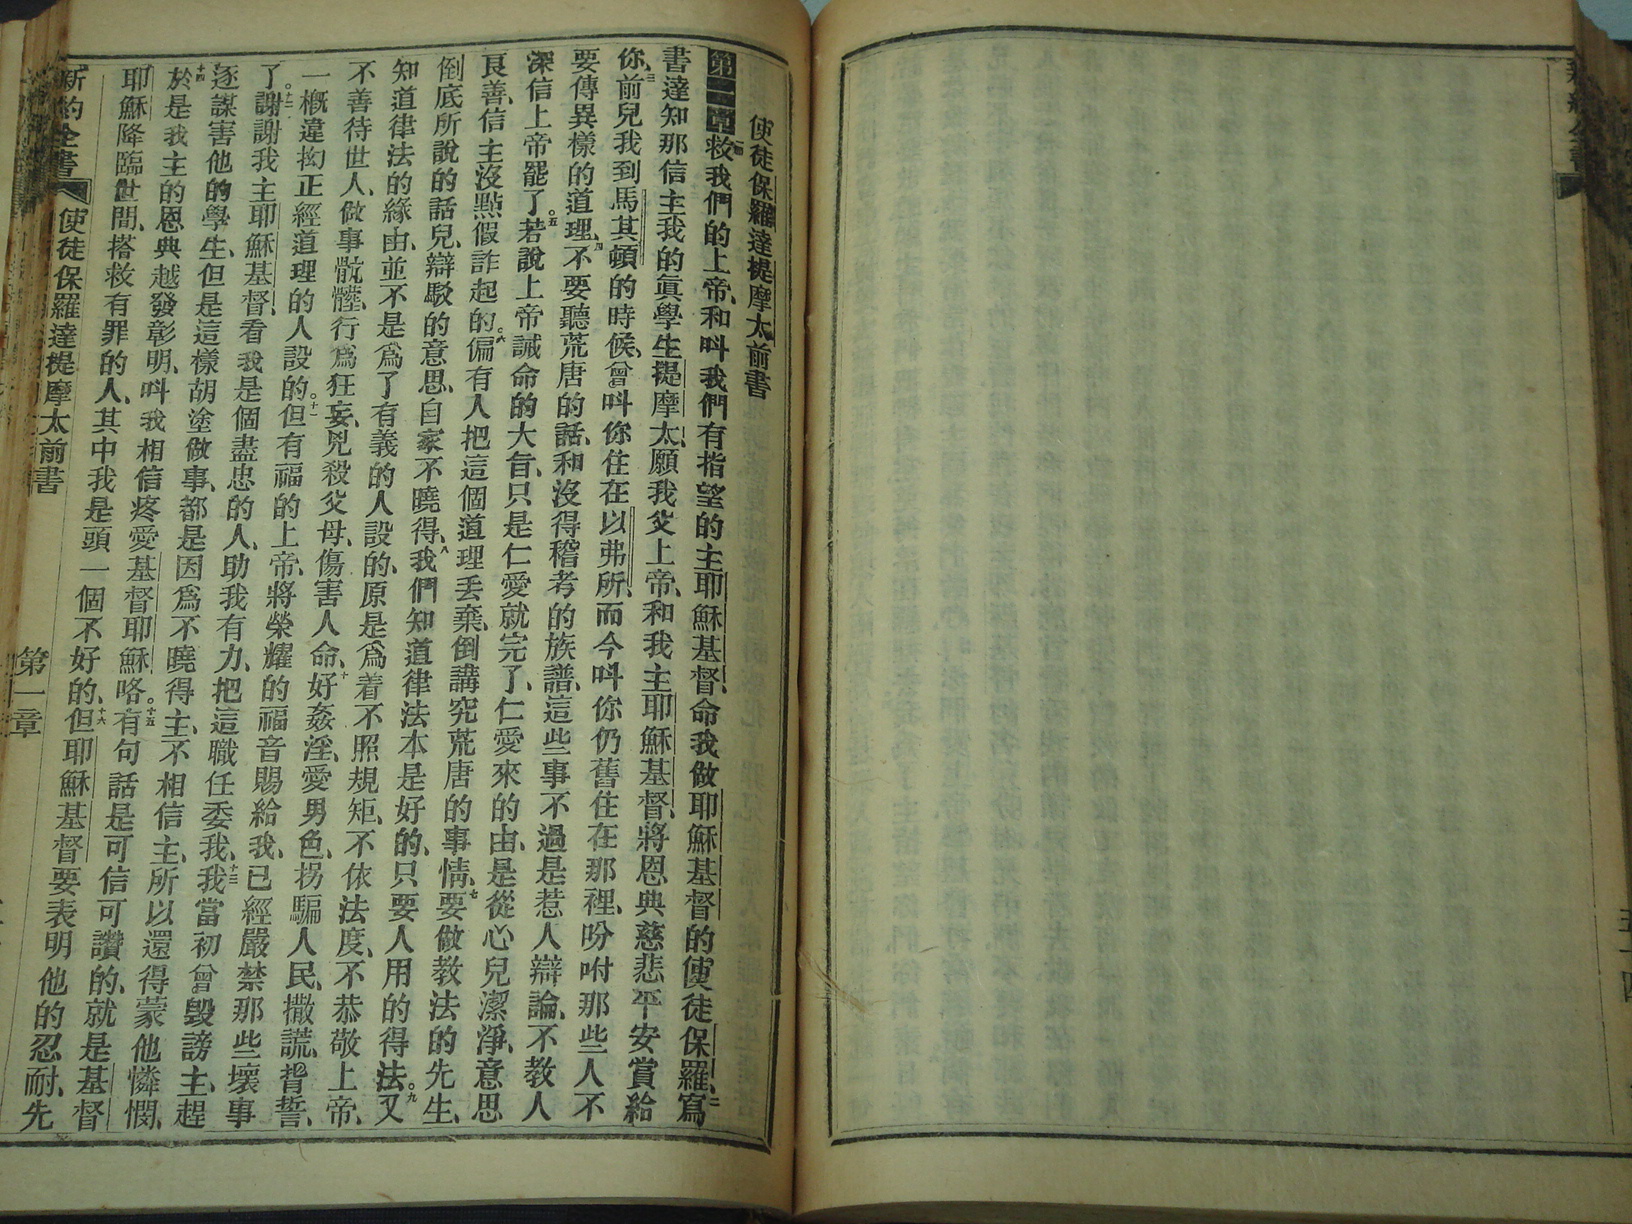 使徒保羅達提摩太前書
第一章救我們的上帝、和呌我們有指望的主耶穌基督、命我做耶穌基督的使徒保羅、二寫
書達知那信主我的眞學生提摩太、願我父上帝、和我主耶穌基督、將恩典慈悲平安、賞給
你、三前兒我到馬其頓的時候、曾呌你住在以弗所、而今呌你仍舊住在那裡、吩咐那些人不
要傳異樣的道理、四不要聽荒唐的話、和沒得稽考的族譜、這些事不過是惹人辯論、不教人
深信上帝罷了。五若說上帝誡命的大旨、只是仁愛就完了、仁愛來的由、是從心兒潔淨、意思
良善、信主沒點假詐起的。六偏有人把這個道理丢棄、倒講究荒唐的事情、七要做教法的先生、
倒底所說的話兒、辯駁的意思、自家不曉得、八我們知道律法本是好的、只要人用的得法。九又
知道律法的緣由、並不是爲了有義的人設的、原是爲着不照規矩、不依法度、不恭敬上帝、
不善待世人、做事骯髒、行爲狂妄、兇殺父母、傷害人命、十好姦淫、愛男色、拐騙人民、撒謊、背誓、
一槪違拗正經道理的人設的。十一但有福的上帝、將榮耀的福音賜給我、已經嚴禁那些壞事
了。十二謝謝我主耶穌基督、看我是個盡忠的人、助我有力、把這職任委我、十三我當初曾毀謗主、趕
逐謀害他的學生、但是這樣胡塗做事、都是因爲不曉得主、不相信主、所以還得蒙他憐憫、
十四於是我主的恩典越發彰明、呌我相信疼愛基督耶穌咯。十五有句話是可信可讚的、就是基督
耶穌降臨世間、搭救有罪的人、其中我是頭一個不好的、十六但耶穌基督要表明他的忍耐、先
新約全書 使徒保羅達提摩太前書 第一章